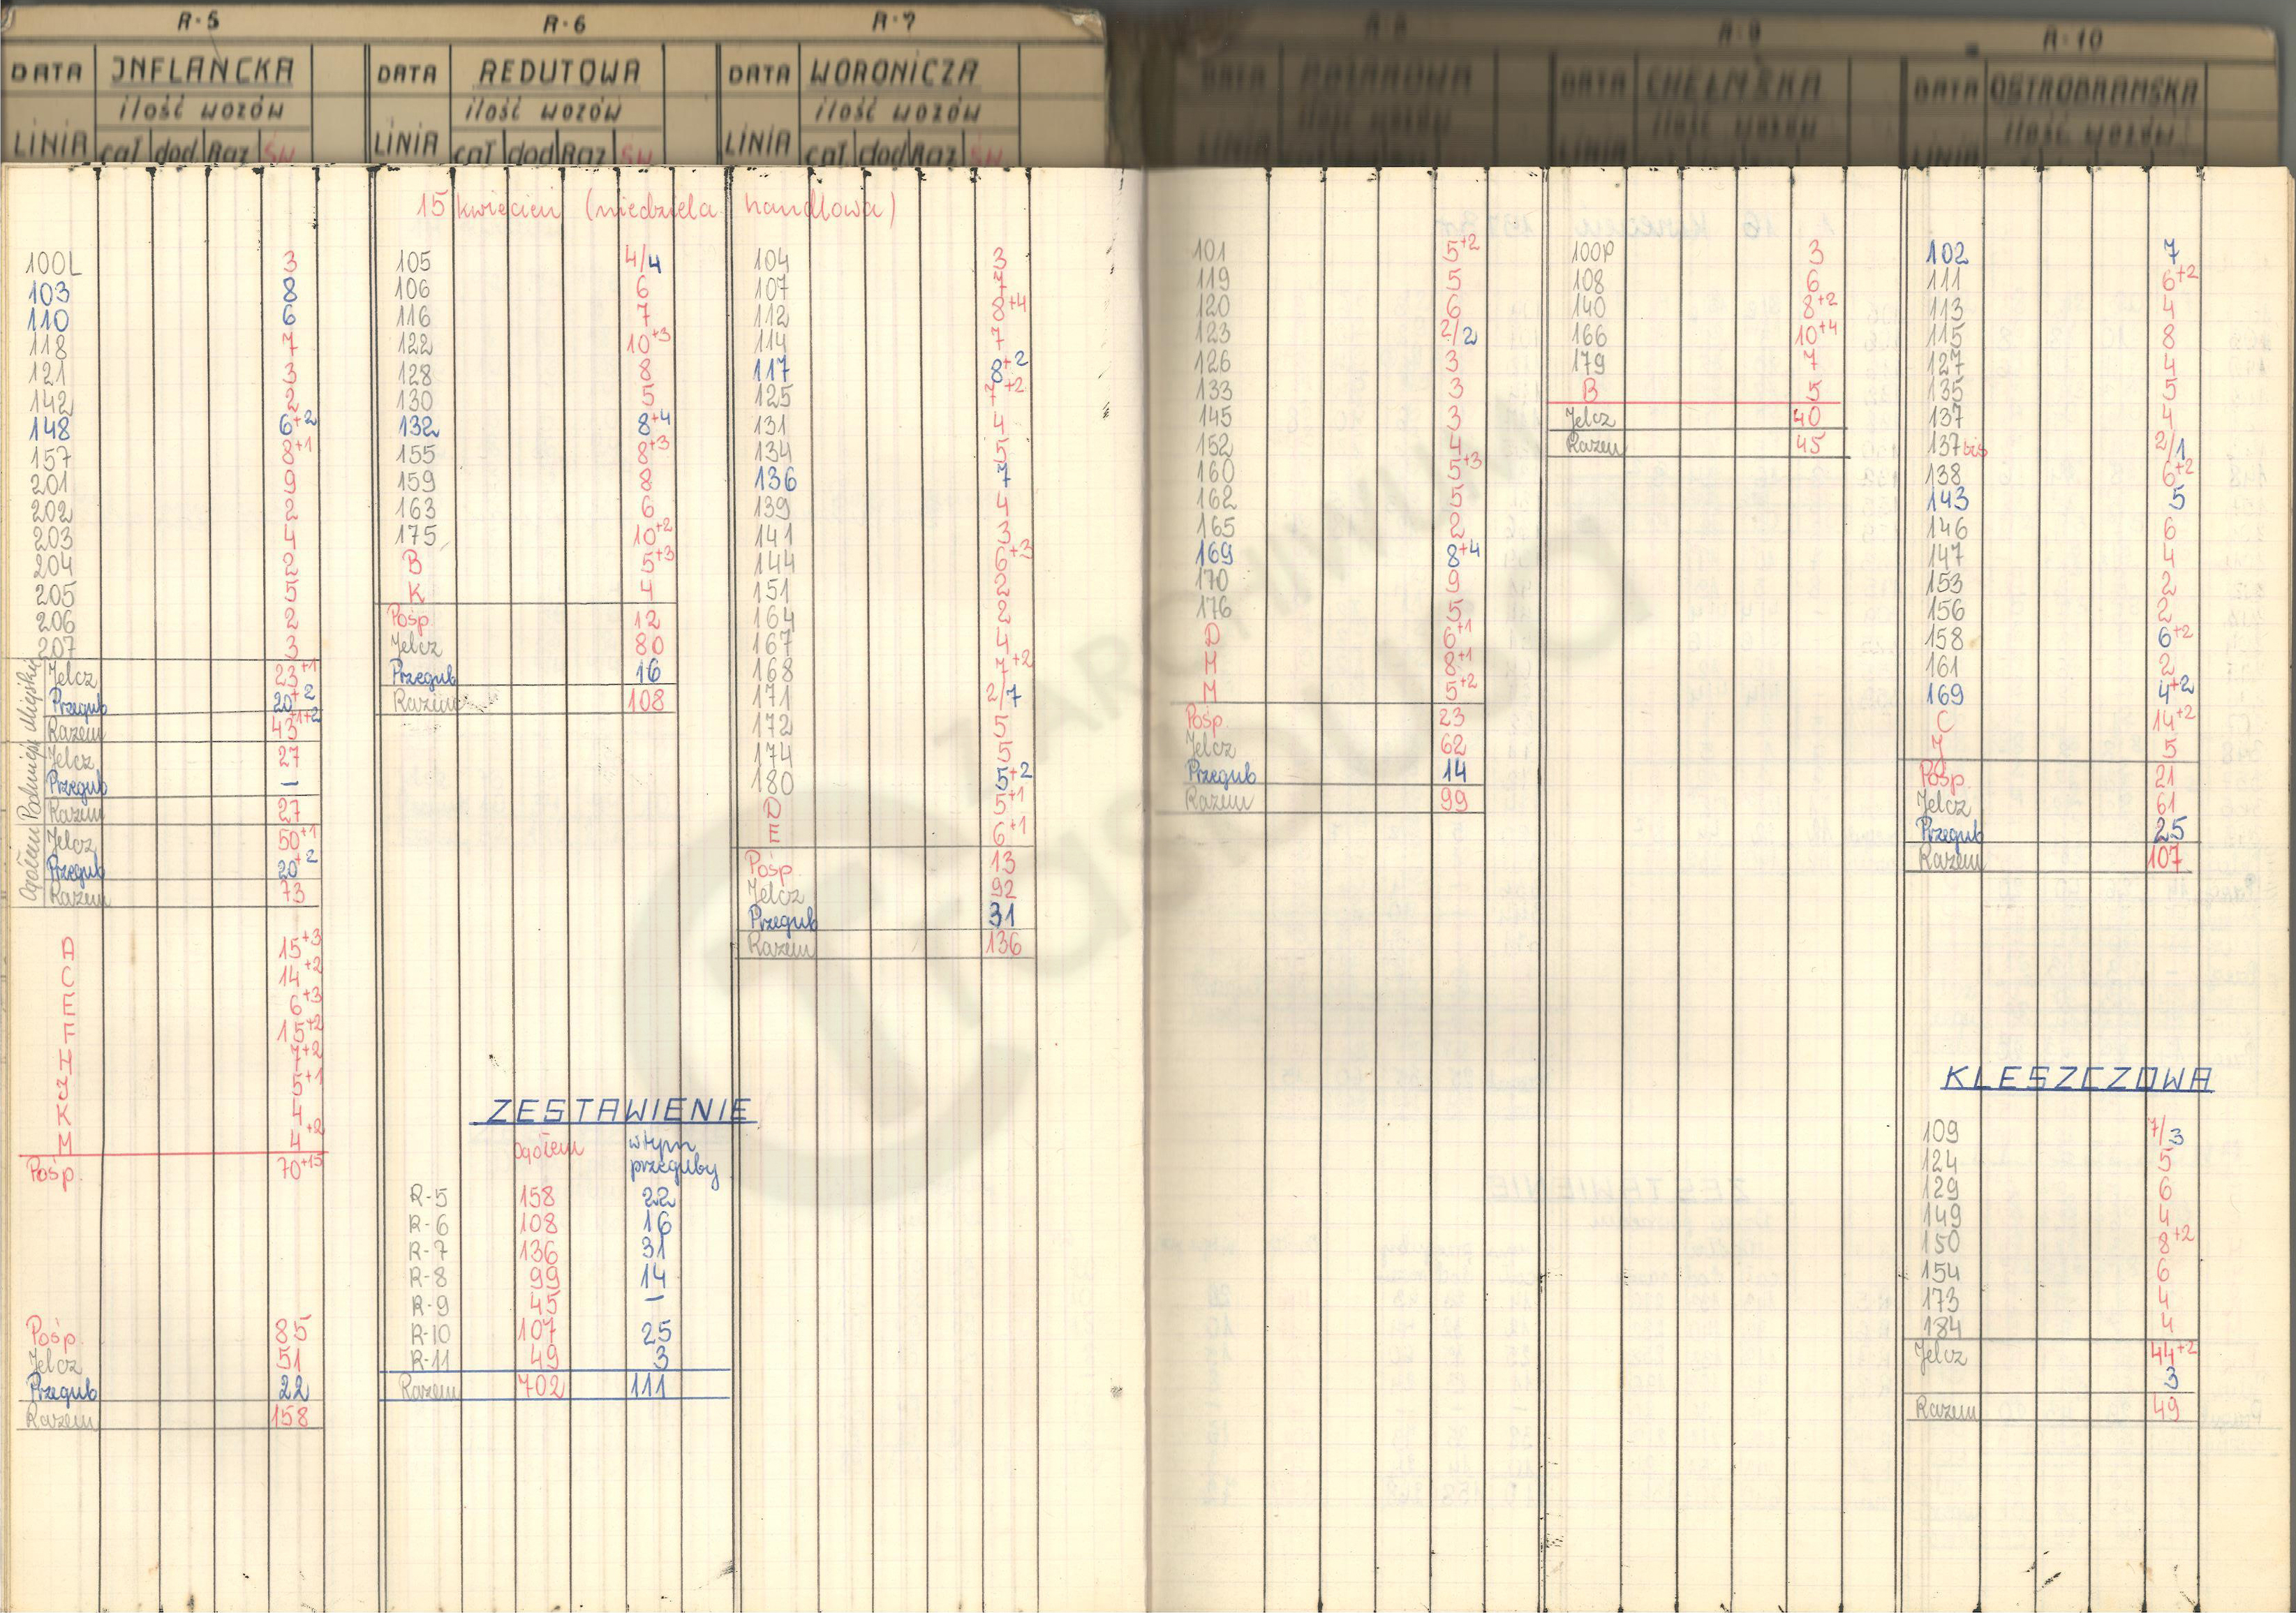 R-5
DATA INFLANCKA
ilość wozów
LINIA cał dod Raz Św
R-6
DATA REDUTOWA
ilość wozów
LINIA cał dod Raz Św
R-7
DATA WORONICZA
ilość wozów
LINIA cał dod Raz Św
R-8
DATA
ilość wozów
LINIA
R-9
DATA CHEŁMSKA
ilość wozów
LINIA
R-10
DATA OSTROBRAMSKA
ilość wozów
LINIA
15 kwiecień (niedziela handlowa)
100L 3
103 8
110 6
118 7
121 3
142 2
148 6+2
157 8+1
201 9
202 2
203 4
204 2
205 5
206 2
207 3
Miejskie
Jelcz 23+1
Przegub 20+2
Razem 43+1+2
Podmiejs
Jelcz 27
Przegub –
Razem 27
Ogółem
Jelcz 50+1
Przegub 20+2
Razem 73
A 15+3
C 14+2
E 6+3
F 15+2
H 7+2
J 5+1
K 4
M 4+2
Pośp. 70+15
Pośp. 85
Jelcz 51
Przegub 22
Razem 158
105 4/4
106 6
116 7
122 10+3
128 8
130 5
132 8+4
155 8+3
159 8
163 6
175 10+2
B 5+3
K 4
Pośp. 12
Jelcz 80
Przegub 16
Razem 108
ZESTAWIENIE
ogółem w tym
przeguby
R-5 158 22
R-6 108 16
R-7 136 31
R-8 99 14
R-9 45 –
R-10 107 25
R-11 49 3
Razem 702 111
104 3
107 7
112 8+4
114 7
117 8+2
125 7+2
131 4
134 5
136 7
139 4
141 3
144 6+3
151 2
164 2
167 4
168 7+2
171 2/7
172 5
174 5
180 5+2
D 5+1
E 6+1
Pośp. 13
Jelcz 92
Przegub 31
Razem 136
101 5+2
119 5
120 6
123 2/2
126 3
133 3
145 3
152 4
160 5+3
162 5
165 2
169 8+4
170 9
176 5
D 6+1
H 8+1
M 5+2
Pośp. 23
Jelcz 62
Przegub 14
Razem 99
100P 3
108 6
140 8+2
166 10+4
179 7
B 5
Jelcz 40
Razem 45
102 7
111 6+2
113 4
115 8
127 4
135 5
137 4
137bis 2/1
138 6+2
143 5
146 6
147 4
153 2
156 2
158 6+2
161 2
169 4+2
C 14+2
J 5
Pośp. 21
Jelcz 61
Przegub 25
Razem 107
KLESZCZOWA
109 7/3
124 5
129 6
149 4
150 8+2
154 6
173 4
184 4
Jelcz 44+2
3
Razem 49